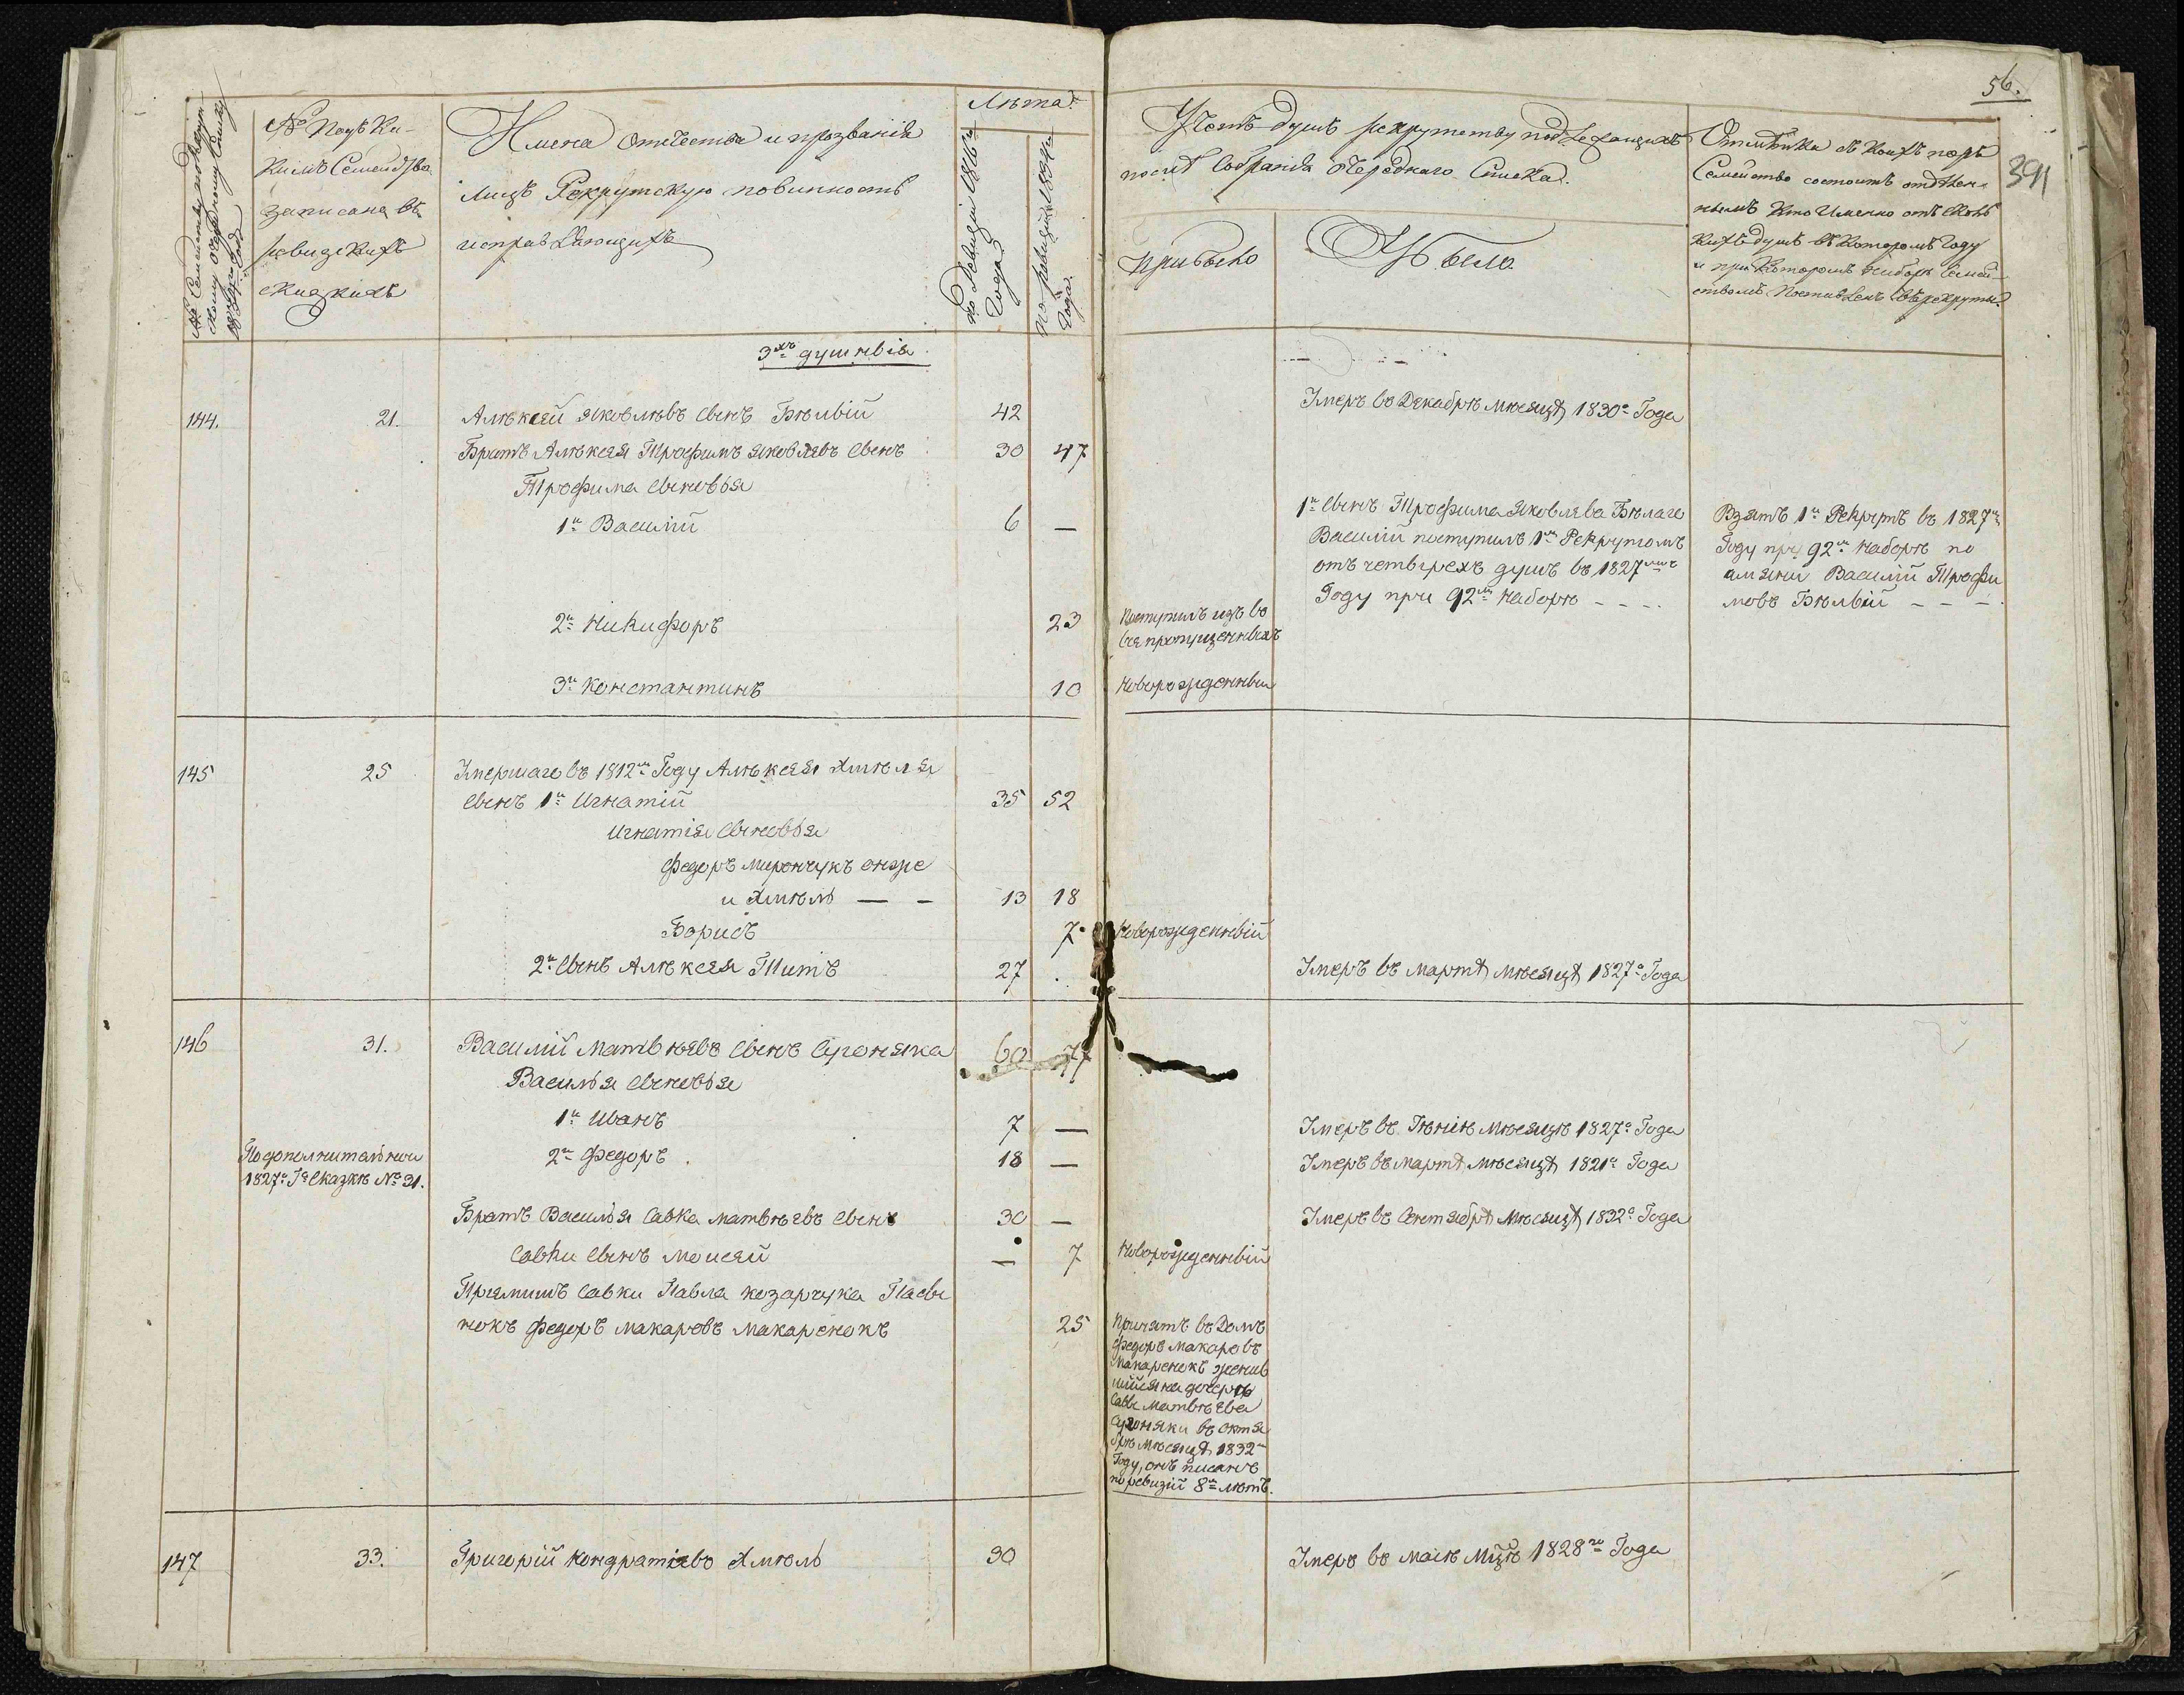 56.
391
№ Семейству по
Лѣта
№ подъ Ка-
кимъ Семейства
записана въ
ревизскихъ
сказкахъ
Имена отечества и прозванія
лицъ Рекрутскую повинность
исправляющихъ
по ревизіи 1816го
Года
по ревизіи 1834го
Года
Учетъ душъ рекрутству подлежащихъ
послѣ Собранія очереднаго Списка.
прибыло
Убыло
Отмѣтка съ коихъ поръ
Семейство состоитъ отдѣлен-
нымъ Кто Именно отъ
кихъ душъ въ Которомъ Году
и при Которомъ наборѣ Семей-
ствомъ Поставленъ въ рекруты.
3хъ душныя
144.
21.
Алѣксей Яковлѣвъ сынъ Бѣлый
42
Умеръ въ Декабрѣ мѣсяцѣ 1830го Года
Братъ Алѣксея Трофимъ Яковлевъ сынъ
30
47
Трофима сыновья
1й Василій
6
—
1й сынъ Трофима Яковлева Бѣлаго
Василій поступилъ 1мъ Рекрутомъ
отъ четырехъ душъ въ 1827мъ
Году при 92мъ наборѣ - - - -
Взятъ 1й Рекрутъ въ 1827мъ
Году при 92мъ наборѣ по
имяни Василій Трофи
мовъ Бѣлый - - -
2й Никифоръ
23
Поступилъ изъ во
вся пропущенныхъ
3й Константинъ
10
Новорожденный
145
25
Умершаго въ 1812мъ Году Алѣксея Хмѣля
сынъ 1й Игнатій
35
52
Игнатія сыновья
Федоръ Мирончукъ онже
и Хмѣль — —
13
18
Борисъ
7
Новорожденный
2й сынъ Алѣксея Титъ
27
Умеръ въ мартѣ мѣсяцѣ 1827го Года
146
31.
Василій Матвѣевъ сынъ Сугоняка
60
77
Василья сыновья
1й Иванъ
7
—
Умеръ въ Іюніѣ мѣсяцѣ 1827го Года
По дополнительной
1827го Га Сказкѣ № 31.
2й Федоръ
18
—
Умеръ въ мартѣ мѣсяцѣ 1821го Года
Братъ Василья Савка Матвѣевъ сынъ
30
—
Умеръ въ Сентябрѣ мѣсяцѣ 1832го Года
Савки сынъ Моисей
—
7
Новорожденный
Премышъ Савки Павла Козарчука Пасы
нокъ Федоръ Макаровъ Макаренокъ
25
Принятъ въ Домъ
Федоръ Макаровъ
Макаренокъ женив
шійся на дочерѣ
Савы Матвѣева
Сугоняки въ октя
брѣ мѣсяцѣ 1832мъ
Году, онъ писанъ
по ревизіи 8й лѣтъ.
147
33.
Григорій Кондратіевъ Хмѣль
30
Умеръ въ маіѣ мцѣ 1828го Года